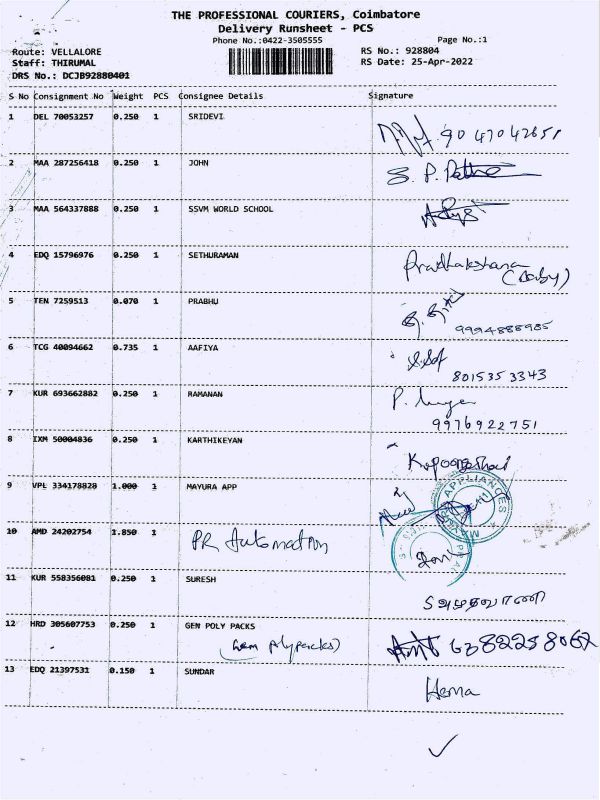 THE PROFESSIONAL COURIERS, Coimbatore
Delivery Runsheet - PCS
Phone No.:0422-3505555 Page No.:1
Route: VELLALORE RS No.: 928804
Staff: THIRUMAL RS Date: 25-Apr-2022
DRS No.: DCJB92880401
S No Consignment No Weight PCS Consignee Details Signature
1 DEL 70053257 0.250 1 SRIDEVI
2 MAA 287256418 0.250 1 JOHN
3 MAA 564337888 0.250 1 SSVM WORLD SCHOOL
4 EDQ 15796976 0.250 1 SETHURAMAN
(Baby)
5 TEN 7259513 0.070 1 PRABHU
9994888985
6 TCG 40094662 0.735 1 AAFIYA
8015353343
7 KUR 693662882 0.250 1 RAMANAN
9976922751
8 IXM 50004836 0.250 1 KARTHIKEYAN
9 VPL 334178828 1.000 1 MAYURA APP
APPLIANCES
10 AMD 24202754 1.850 1 PR Automation
11 KUR 558356081 0.250 1 SURESH
12 HRD 305607753 0.250 1 GEN POLY PACKS
(Gem polypacks)
13 EDQ 21397531 0.150 1 SUNDAR Hema